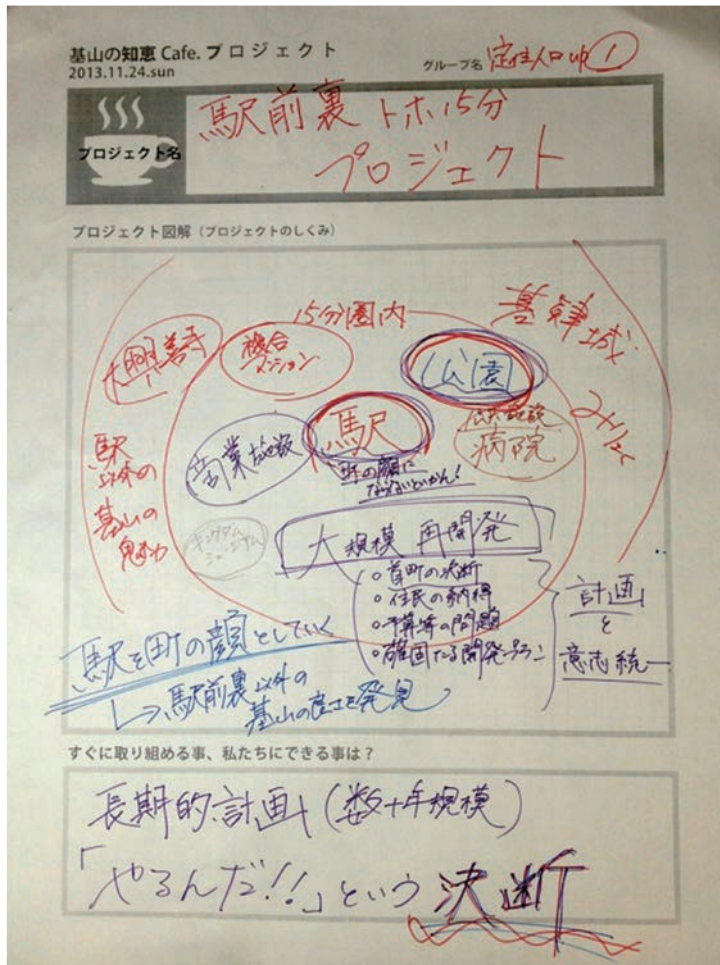 基山の知恵 Cafe. プロジェクト
2013.11.24.sun
グループ名 定住人口up ①
プロジェクト名
駅前裏 トホ15分
プロジェクト
プロジェクト図解（プロジェクトのしくみ）
15分圏内
基肄城
大興善寺
複合
マンション
公園
駅
商業施設
病院
町の顔に
ならないといかん！
駅
以外の
基山の
魅力
キングダム
ミュージアム
大規模 再開発
○首町の決断
○住民の納得
○予算等の問題
○確固たる開発プラン
計画
と
意志統一
駅を町の顔としていく
↳駅前裏以外の
基山の良さを発見
すぐに取り組める事、私たちにできる事は？
長期的計画（数十年規模）
「やるんだ!!」という 決断